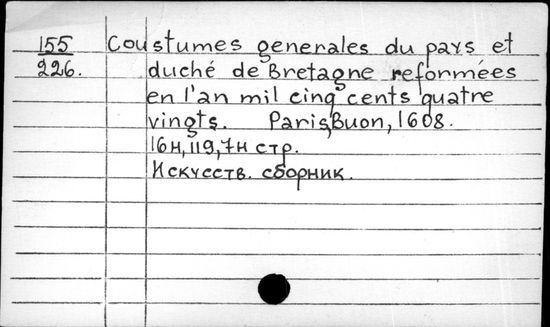 155 Coustumes generales du pays et
226. duché de Bretagne reformées
en l'an mil cinq cents quatre
vingts. Paris, Buon, 1608.
16н, 119, 7н стр.
Искусств. сборник.